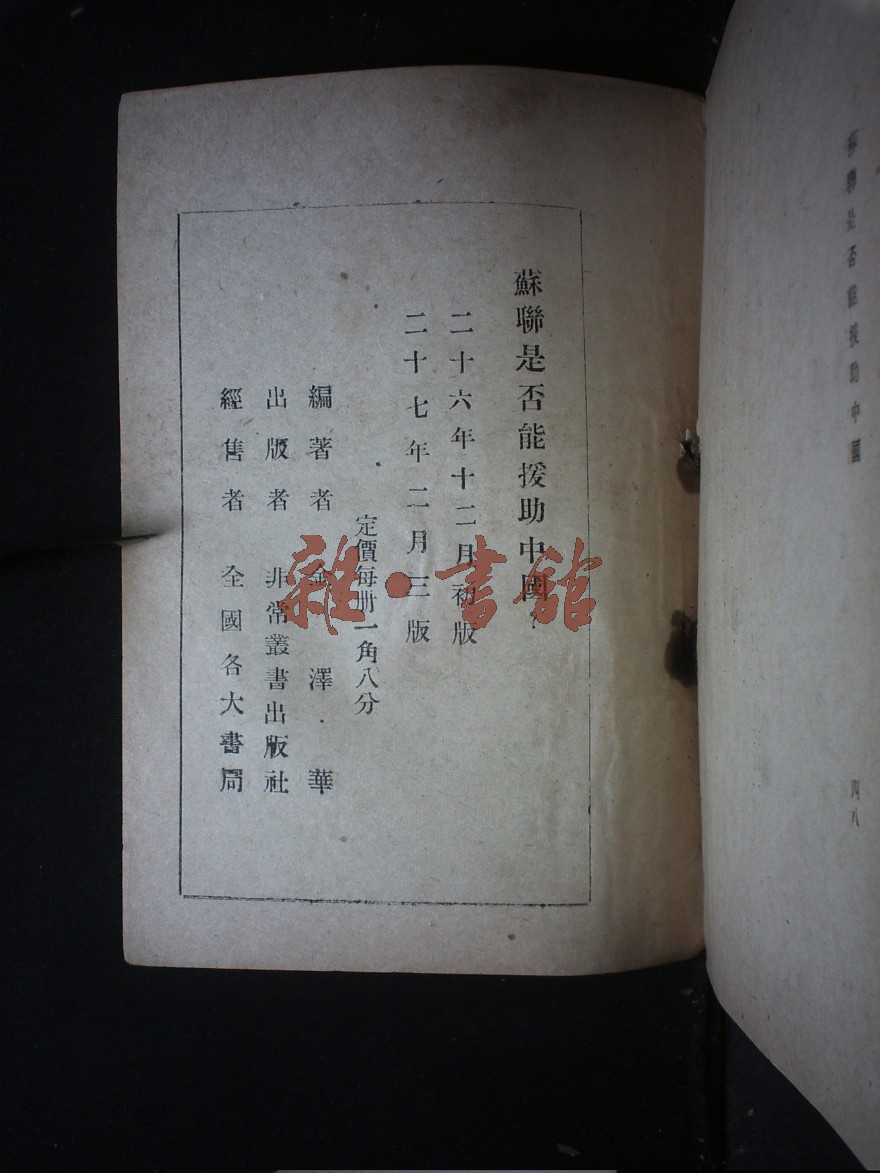 蘇聯是否能援助中國？
二十六年十二月初版
二十七年二月三版
定價每册一角八分
編著者 金澤華
出版者 非常叢書出版社
經售者 全國各大書局
雜·書館
蘇聯是否能援助中國
四八